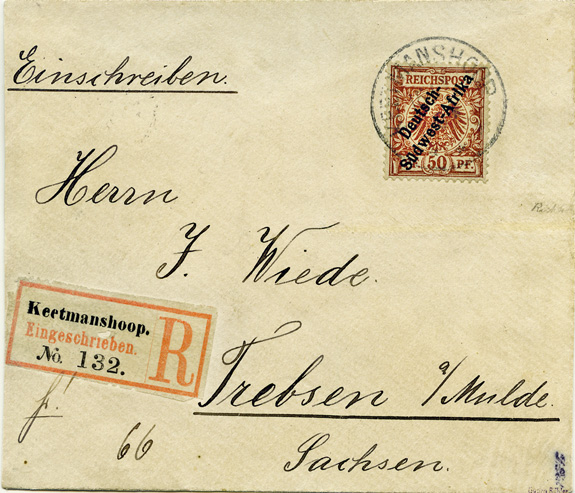 Einschreiben.
KEETMANSHOOP
REICHSPOST
Deutsch-
Südwest-Afrika
50 PF.
Herrn
F. Wiede.
Keetmanshoop.
Eingeschrieben.
No. 132.
R
Trebsen a/Mulde.
66
Sachsen.